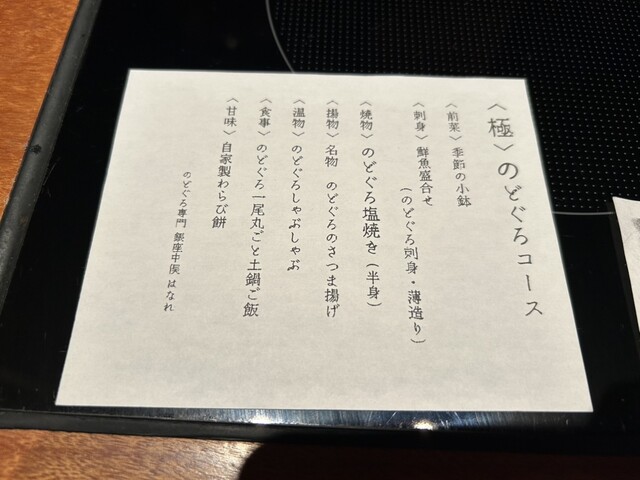 〈極〉のどぐろコース
〈前菜〉季節の小鉢
〈刺身〉鮮魚盛合せ
(のどぐろ刺身・薄造り)
〈焼物〉のどぐろ塩焼き(半身)
〈揚物〉名物 のどぐろのさつま揚げ
〈温物〉のどぐろしゃぶしゃぶ
〈食事〉のどぐろ一尾丸ごと土鍋ご飯
〈甘味〉自家製わらび餅
のどぐろ専門 銀座中俣 はなれ